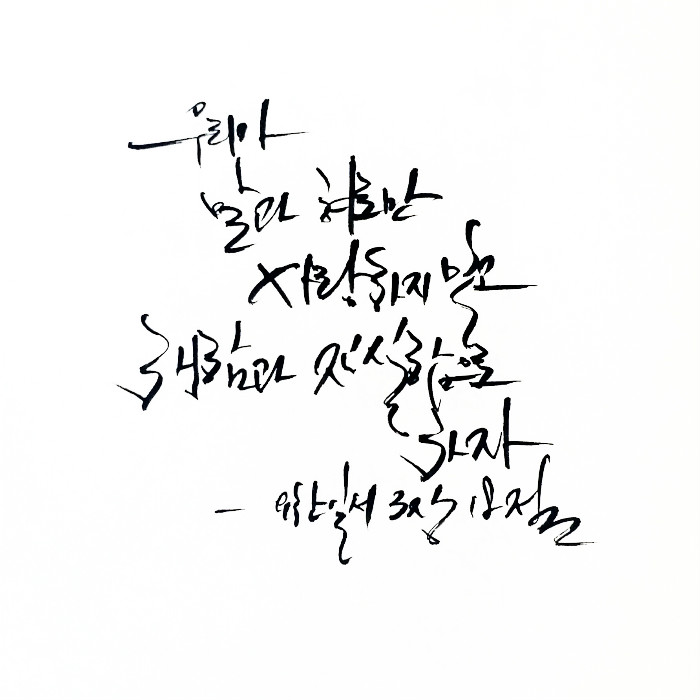 우리가
말과 혀로만
사랑하지 말고
행함과 진실함으로
하자
- 요한일서 3장 18절